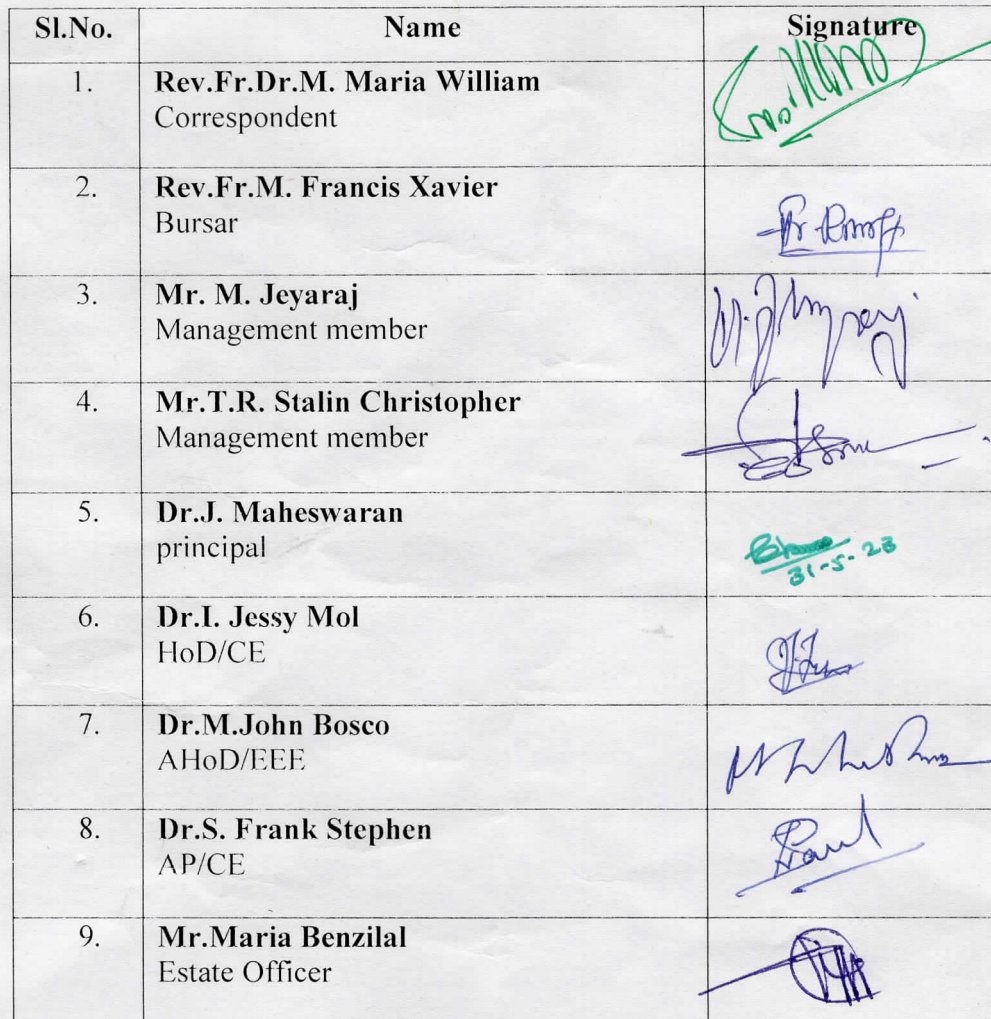 Sl.No. Name Signature
1. Rev.Fr.Dr.M. Maria William
Correspondent
2. Rev.Fr.M. Francis Xavier
Bursar
3. Mr. M. Jeyaraj
Management member
4. Mr.T.R. Stalin Christopher
Management member
5. Dr.J. Maheswaran
principal
31-5-23
6. Dr.I. Jessy Mol
HoD/CE
7. Dr.M.John Bosco
AHoD/EEE
8. Dr.S. Frank Stephen
AP/CE
9. Mr.Maria Benzilal
Estate Officer